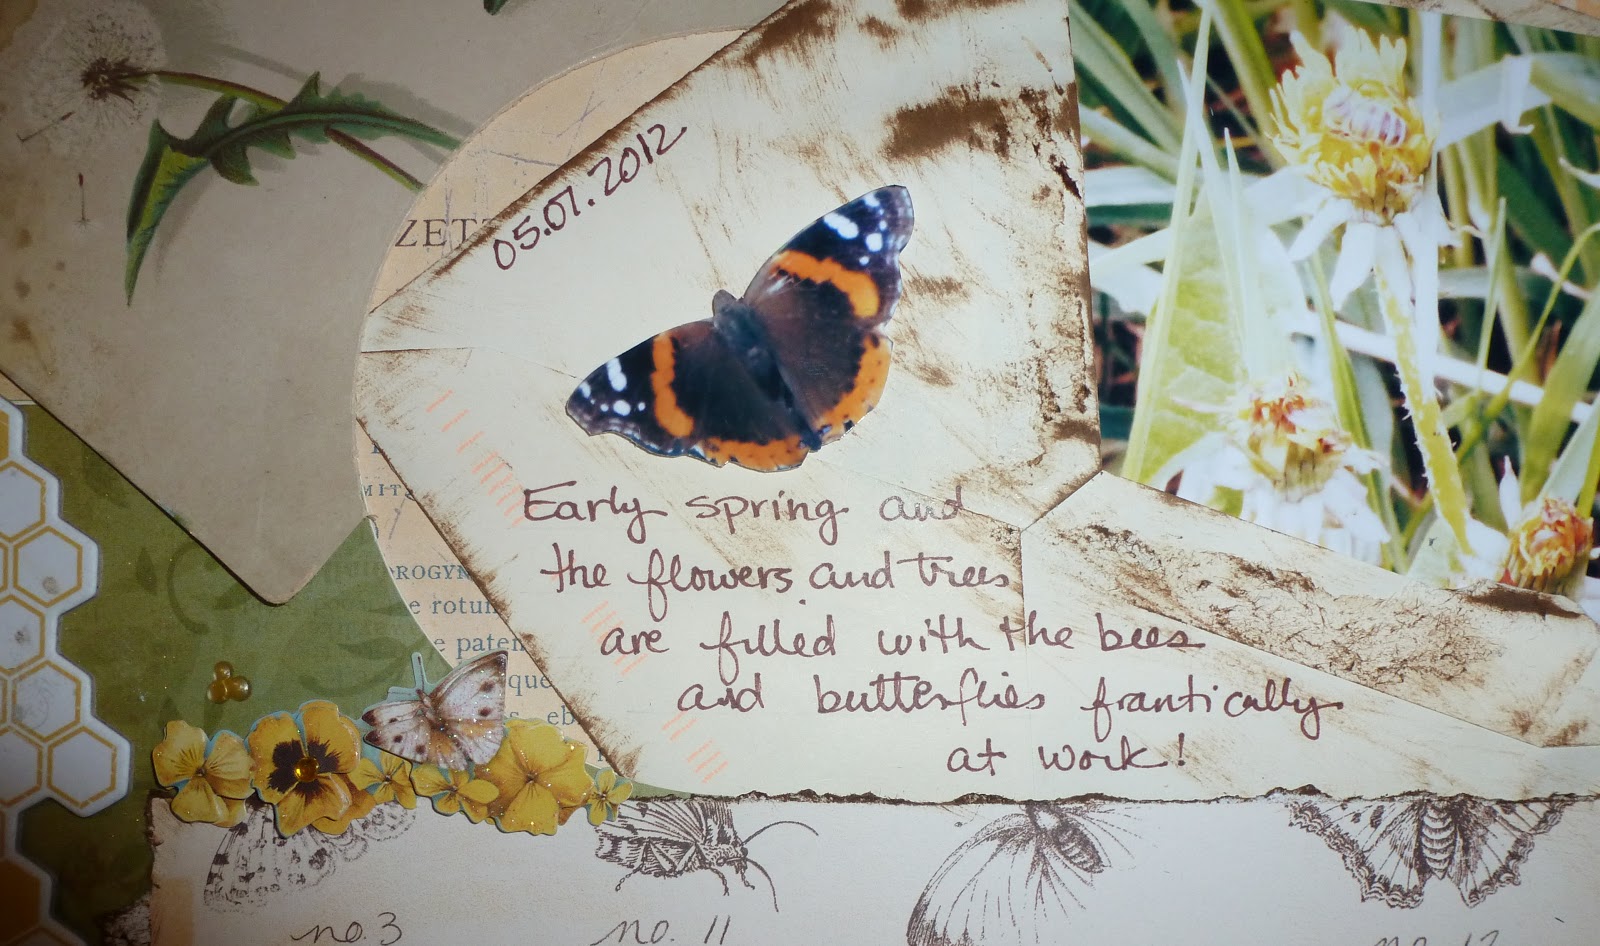 05.07.2012
ZETT
Early spring and
the flowers and trees
are filled with the bees
and butterflies frantically
at work!
MITS
ROGYN
e rotun
e paten
que
s, eb
no. 3
no. 11
no. 12